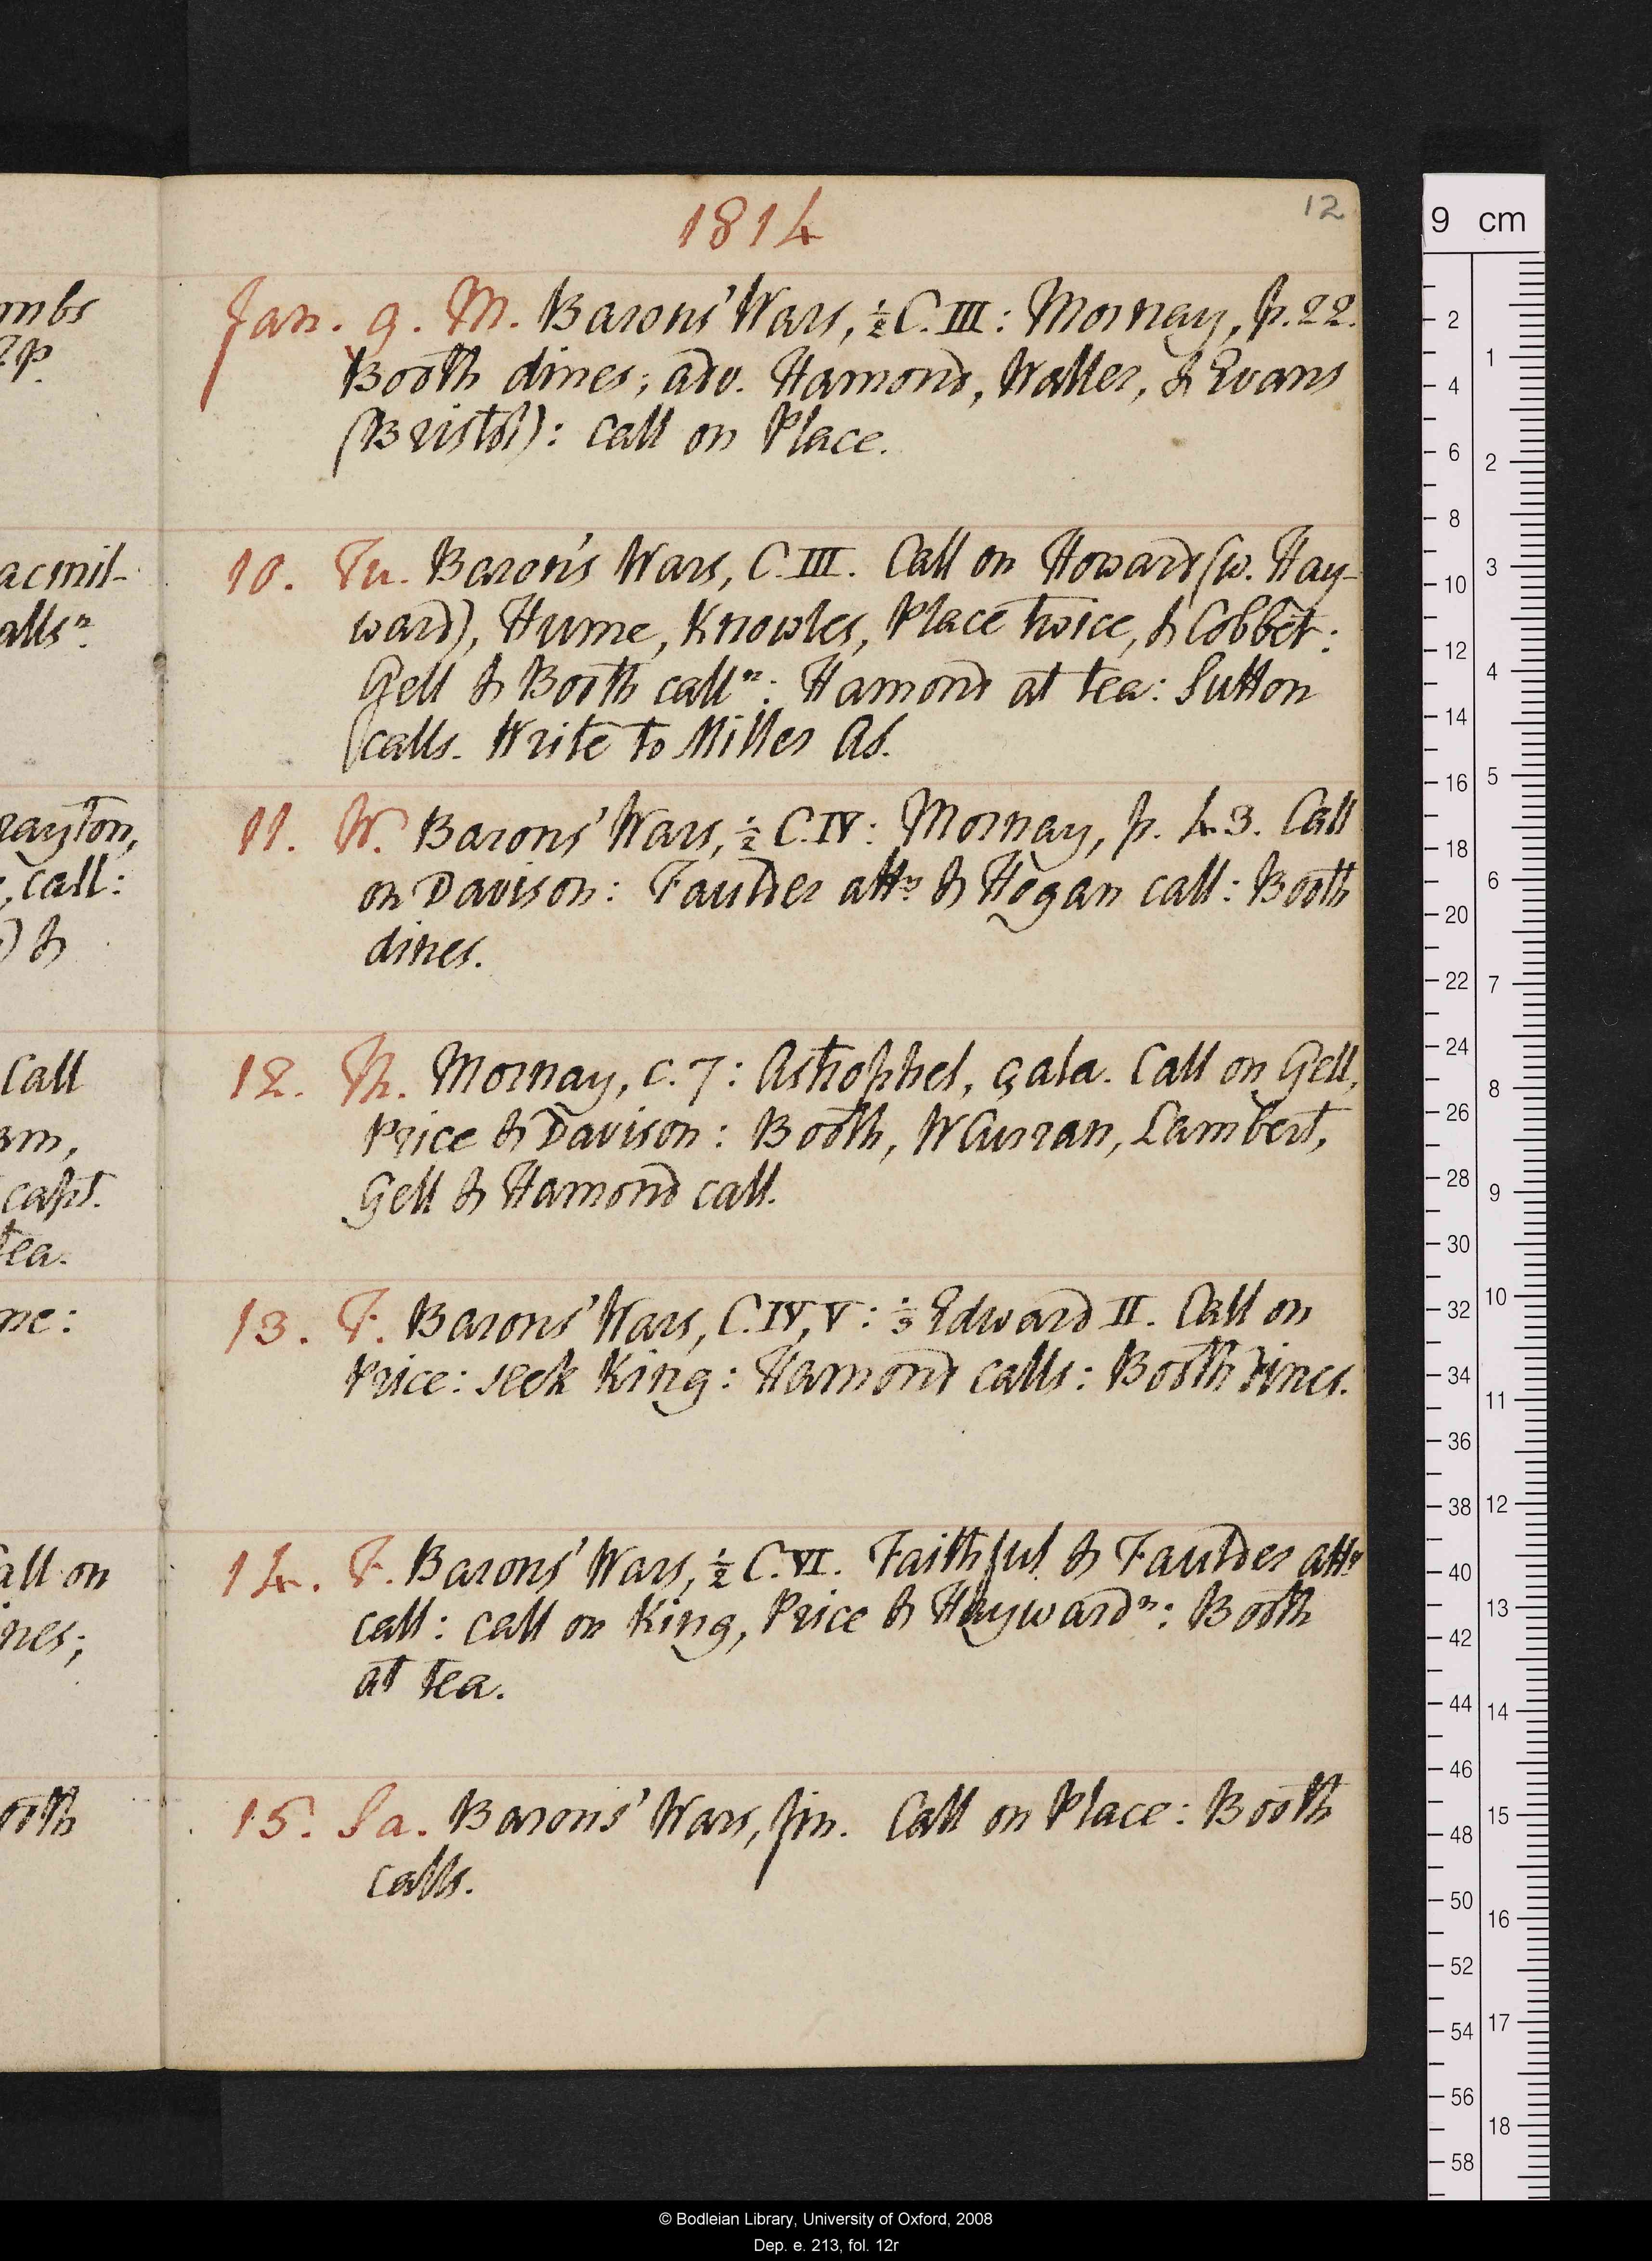 1814
12
Jan. 9. M. Barons' Wars, ½ C. III: Mornay, p. 22.
Booth dines; adv. Hamond, Waller, & Evans
(Bristol): call on Place.
10. Tu. Baron's Wars, C. III. Call on Howard (w. Hay-
ward), Hume, Knowles, Place twice, & Cobbet:
Gell & Booth calln: Hamond at tea: Sutton
calls. Write to Miller Ad.
11. W. Barons' Wars, ½ C. IV: Mornay, p. 43. Call
on Davison: Faulder atty & Hogan call: Booth
dines.
12. Th. Mornay, c. 7: Astrophel, çala. Call on Gell,
Price & Davison: Booth, W Curran, Lambert,
Gell & Hamond call.
13. F. Barons' Wars, C. IV, V: ⅓ Edward II. Call on
Price: seek King: Hamond calls: Booth dines.
14. F. Barons' Wars, ½ C. VI. Faithful & Faulder atty
call: call on King, Price & Haywardn: Booth
at tea.
15. Sa. Barons' Wars, fin. Call on Place: Booth
calls.
mbs
2p.
acmil-
allsn.
rayton,
, call:
) &
Call
am,
capt.
tea.
me:
all on
ines;
ooth
9 cm
2
4
6
8
10
12
14
16
18
20
22
24
26
28
30
32
34
36
38
40
42
44
46
48
50
52
54
56
58
1
2
3
4
5
6
7
8
9
10
11
12
13
14
15
16
17
18
© Bodleian Library, University of Oxford, 2008
Dep. e. 213, fol. 12r